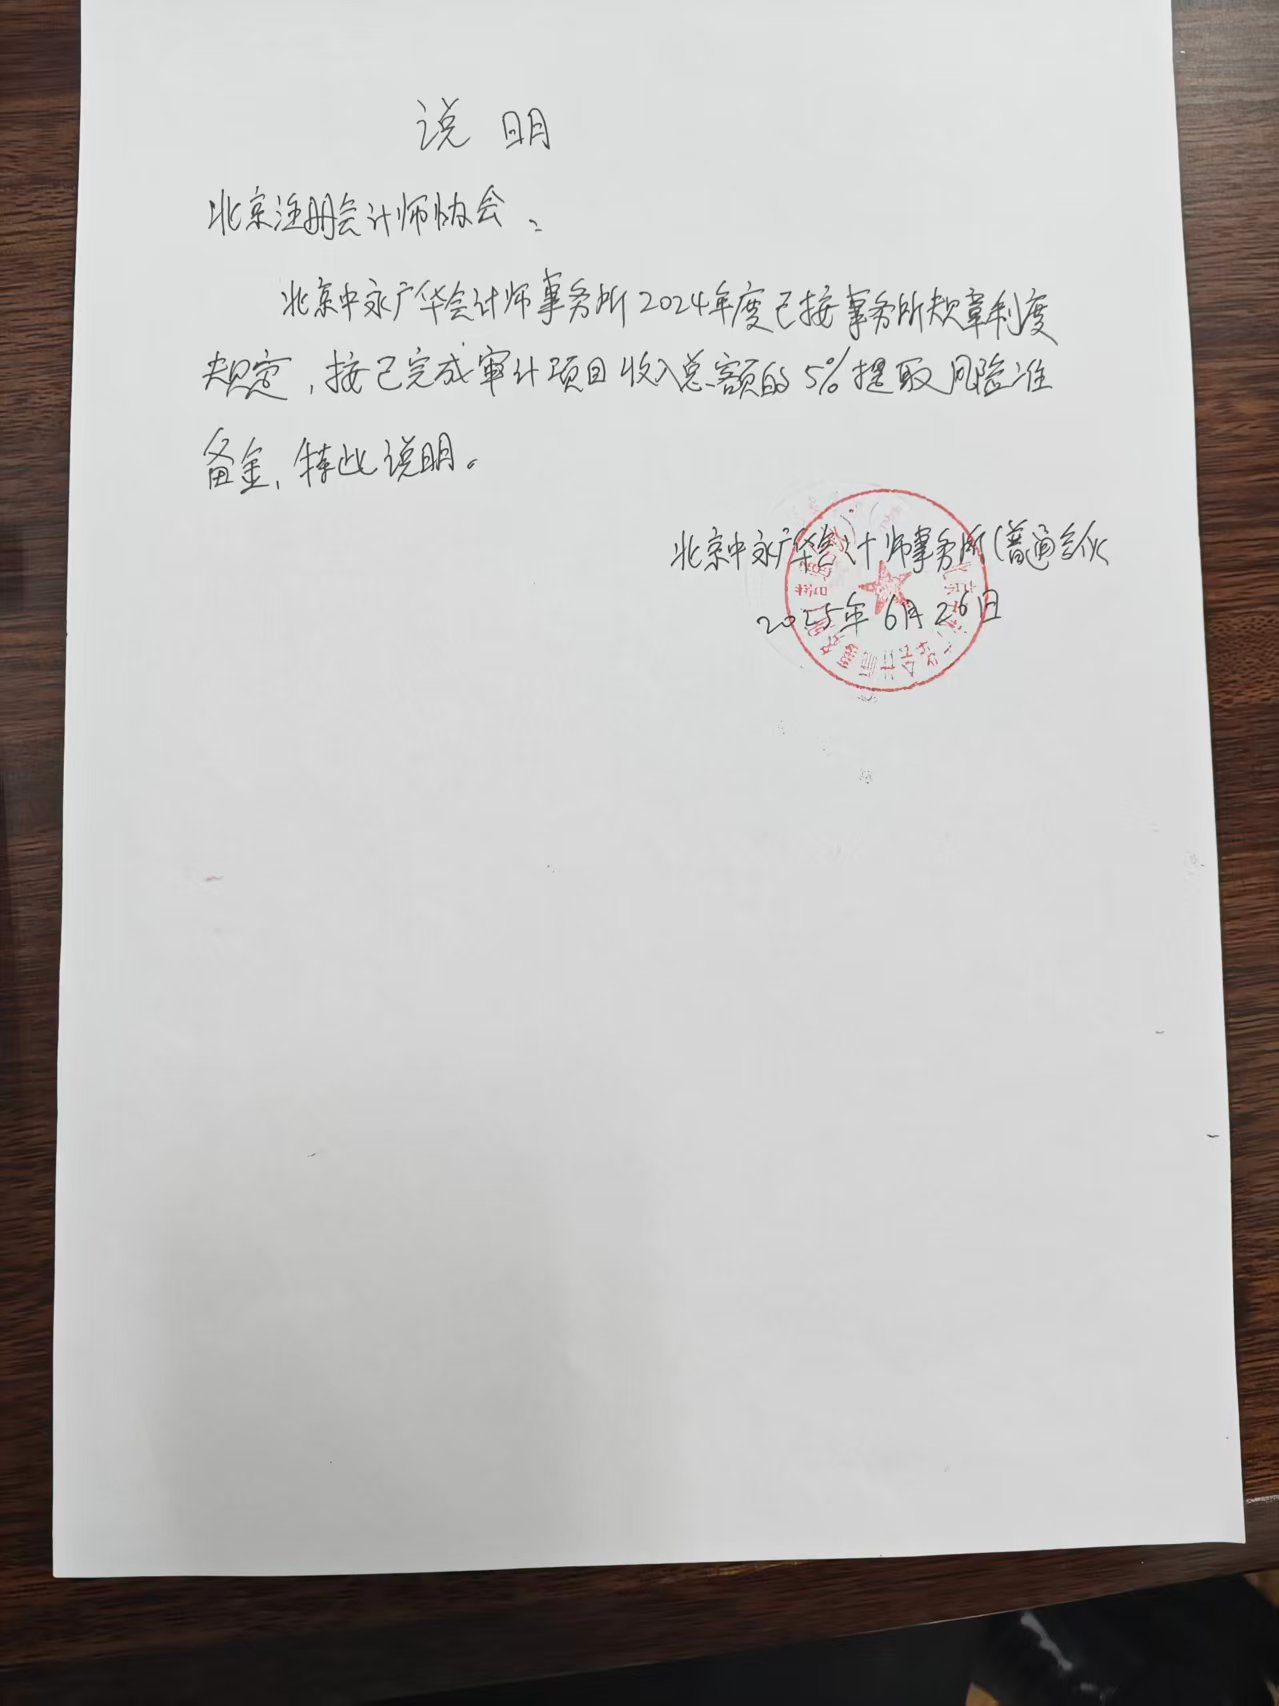 说 明
北京注册会计师协会：
北京中永广华会计师事务所2024年度已按事务所规章制度
规定，按已完成审计项目收入总额的5%提取风险准
备金，特此说明。
北京中永广华会计师事务所（普通合伙
2025年6月26日